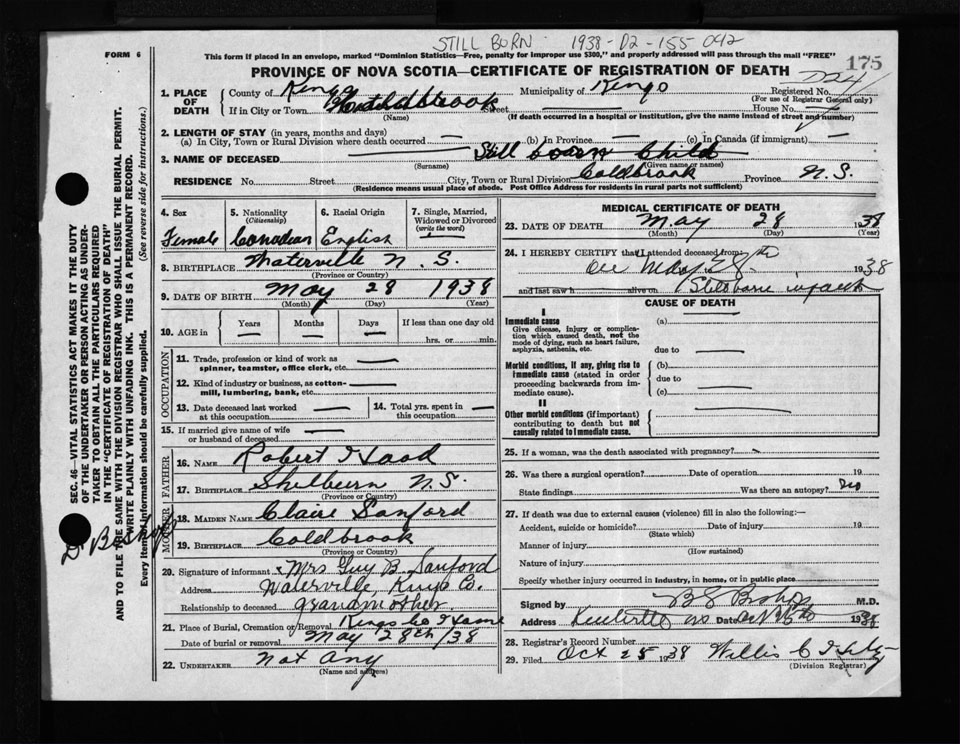 STILL BORN 1938-D2-155-042
This form if placed in an envelope, marked "Dominion Statistics—Free, penalty for improper use $300," and properly addressed will pass through the mail "FREE"
FORM 6
175
PROVINCE OF NOVA SCOTIA—CERTIFICATE OF REGISTRATION OF DEATH
1. PLACE OF DEATH
County of Kings Municipality of Kings Registered No.
(For use of Registrar General only)
If in City or Town Coldbrook Street House No.
(Name) (If death occurred in a hospital or institution, give the name instead of street and number)
2. LENGTH OF STAY (in years, months and days)
(a) In City, Town or Rural Division where death occurred — (b) In Province — (c) In Canada (if immigrant) —
3. NAME OF DECEASED Still born Child
(Surname) (Given name or names)
RESIDENCE No. Street City, Town or Rural Division Coldbrook Province N.S.
(Residence means usual place of abode. Post Office Address for residents in rural parts not sufficient)
SEC. 46—VITAL STATISTICS ACT MAKES IT THE DUTY
OF THE UNDERTAKER OR PERSON ACTING AS UNDER-
TAKER TO OBTAIN ALL THE PARTICULARS REQUIRED
IN THE "CERTIFICATE OF REGISTRATION OF DEATH"
AND TO FILE THE SAME WITH THE DIVISION REGISTRAR WHO SHALL ISSUE THE BURIAL PERMIT.
WRITE PLAINLY WITH UNFADING INK. THIS IS A PERMANENT RECORD.
Every item of information should be carefully supplied. (See reverse side for instructions.)
D. Bishop
4. Sex 5. Nationality (Citizenship) 6. Racial Origin 7. Single, Married, Widowed or Divorced (write the word)
Female Canadian English —
8. BIRTHPLACE Waterville N.S.
(Province or Country)
9. DATE OF BIRTH May 28 1938
(Month) (Day) (Year)
10. AGE in Years Months Days If less than one day old
— — — hrs. or min.
OCCUPATION
11. Trade, profession or kind of work as spinner, teamster, office clerk, etc. —
12. Kind of industry or business, as cotton-mill, lumbering, bank, etc. —
13. Date deceased last worked at this occupation — 14. Total yrs. spent in this occupation —
15. If married give name of wife or husband of deceased —
FATHER
16. NAME Robert Hood
17. BIRTHPLACE Shelburn N.S.
(Province or Country)
MOTHER
18. MAIDEN NAME Claire Sanford
19. BIRTHPLACE Coldbrook
(Province or Country)
20. Signature of informant Mrs Guy B. Sanford
Address Waterville, Kings Co.
Relationship to deceased grandmother
21. Place of Burial, Cremation or Removal Kings Co Home
Date of burial or removal May 28th/38
22. UNDERTAKER Not Any
(Name and address)
MEDICAL CERTIFICATE OF DEATH
23. DATE OF DEATH May 28 1938
(Month) (Day) (Year)
24. I HEREBY CERTIFY that I attended deceased from
1938
and last saw h alive on Stillborn infant
CAUSE OF DEATH
I
Immediate cause (a) —
Give disease, injury or complica-
tion which caused death, not the
mode of dying, such as heart failure,
asphyxia, asthenia, etc. due to —
Morbid conditions, if any, giving rise to (b) —
immediate cause (stated in order due to
proceeding backwards from im-
mediate cause). (c) —
II
Other morbid conditions (if important)
contributing to death but not
causally related to immediate cause. —
25. If a woman, was the death associated with pregnancy?
26. Was there a surgical operation? Date of operation 19
State findings Was there an autopsy? no
27. If death was due to external causes (violence) fill in also the following:—
Accident, suicide or homicide? Date of injury 19
(State which)
Manner of injury
(How sustained)
Nature of injury
Specify whether injury occurred in industry, in home, or in public place
Signed by B S Bishop M.D.
Address Kentville NS Date Oct 1938
28. Registrar's Record Number
29. Filed Oct 25 1938 Willis C
(Division Registrar)